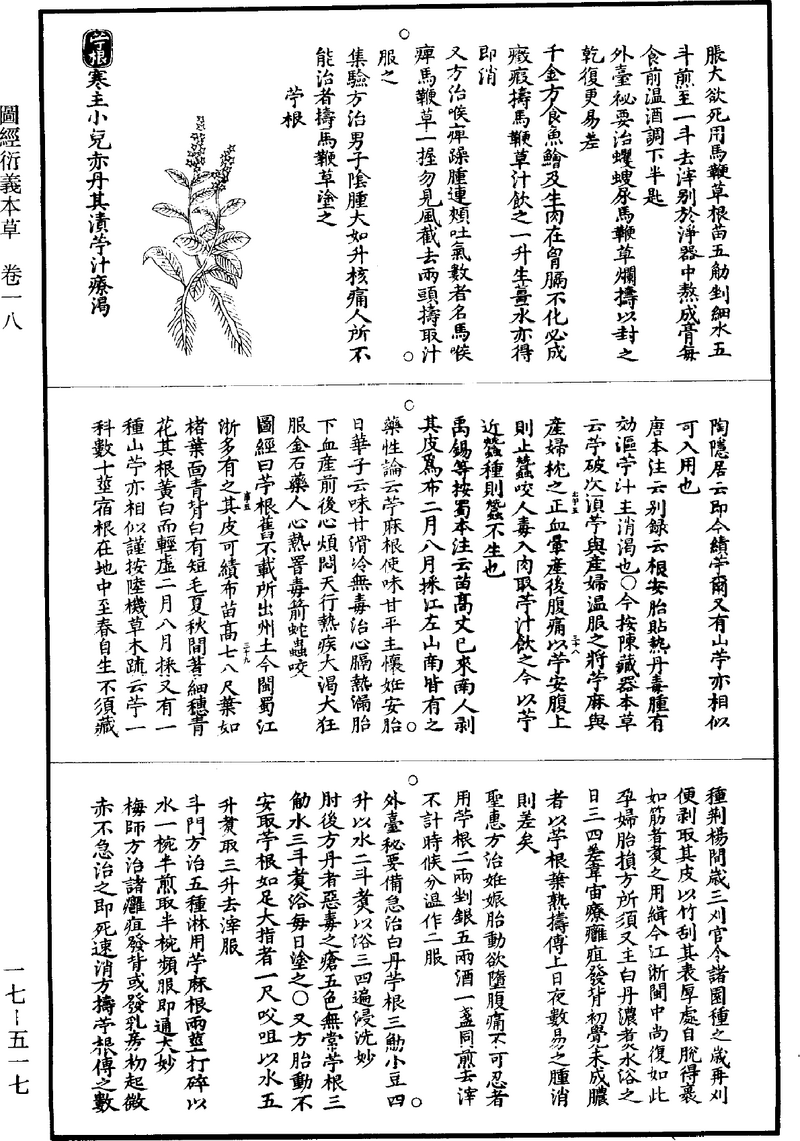 圖經衍義本草　卷一八
一七—五一七
脹大欲死用馬鞭草根苗五觔剉細水五
斗煎至一斗去滓別於淨器中熬成膏每
食前温酒調下半匙
外臺祕要治蠼螋尿馬鞭草爛擣以封之
乾復更易差
千金方食魚鱠及生肉在胷膈不化必成
癥瘕擣馬鞭草汁飲之一升生薑水亦得
即消
又方治喉痺躁腫連頰吐氣數者名馬喉
痺馬鞭草一握勿見風截去兩頭擣取汁
服之
集驗方治男子陰腫大如升核痛人所不
能治者擣馬鞭草塗之
苧根
苧根寒主小兒赤丹其漬苧汁療渴
陶隱居云即今績苧爾又有山苧亦相似
可入用也
唐本注云別録云根安胎貼熱丹毒腫有
効漚苧汁主消渴也○今按陳藏器本草
云苧破血漬苧與產婦温服之將苧麻與
產婦枕之止血暈產後腹痛以苧安腹上
則止蠶咬人毒入肉取苧汁飲之今以苧
近蠶種則蠶不生也
禹錫等按蜀本注云苗高丈已來南人剥
其皮爲布二月八月採江左山南皆有之
藥性論云苧麻根使味甘平主懷姙安胎
日華子云味甘滑冷無毒治心膈熱漏胎
下血産前後心煩悶天行熱疾大渴大狂
服金石藥人心熱署毒箭蛇蟲咬
圖經曰苧根舊不載所出州土今閩蜀江
浙多有之其皮可績布苗高七八尺葉如
楮葉面青背白有短毛夏秋間著細穗青
花其根黃白而輕虛二月八月採又有一
種山苧亦相似謹按陸機草木疏云苧一
科數十莖宿根在地中至春自生不須藏
種荆楊間歲三刈官令諸園種之歲再刈
便剥取其皮以竹刮其表厚處自脫得裹
如筋者煑之用緝今江浙閩中尚復如此
孕婦胎損方所須又主白丹濃煮水浴之
日三四差韋宙療癰疽發背初覺未成膿
者以苧根葉熱擣傅上日夜數易之腫消
則差矣
聖惠方治姙娠胎動欲墮腹痛不可忍者
用苧根二兩剉銀五兩酒一盞同煎去滓
不計時候分温作二服
外臺秘要備急治白丹苧根三觔小豆四
升以水二斗煑以浴三四遍浸洗妙
肘後方丹者惡毒之瘡五色無常苧根三
觔水三斗煑浴每日塗之○又方胎動不
安取苧根如足大指者一尺㕮咀以水五
升煑取三升去滓服
斗門方治五種淋用苧麻根兩莖打碎以
水一椀半煎取半椀頻服即通大妙
梅師方治諸癰疽發背或發乳房初起微
赤不急治之即死速消方擣苧根傅之數